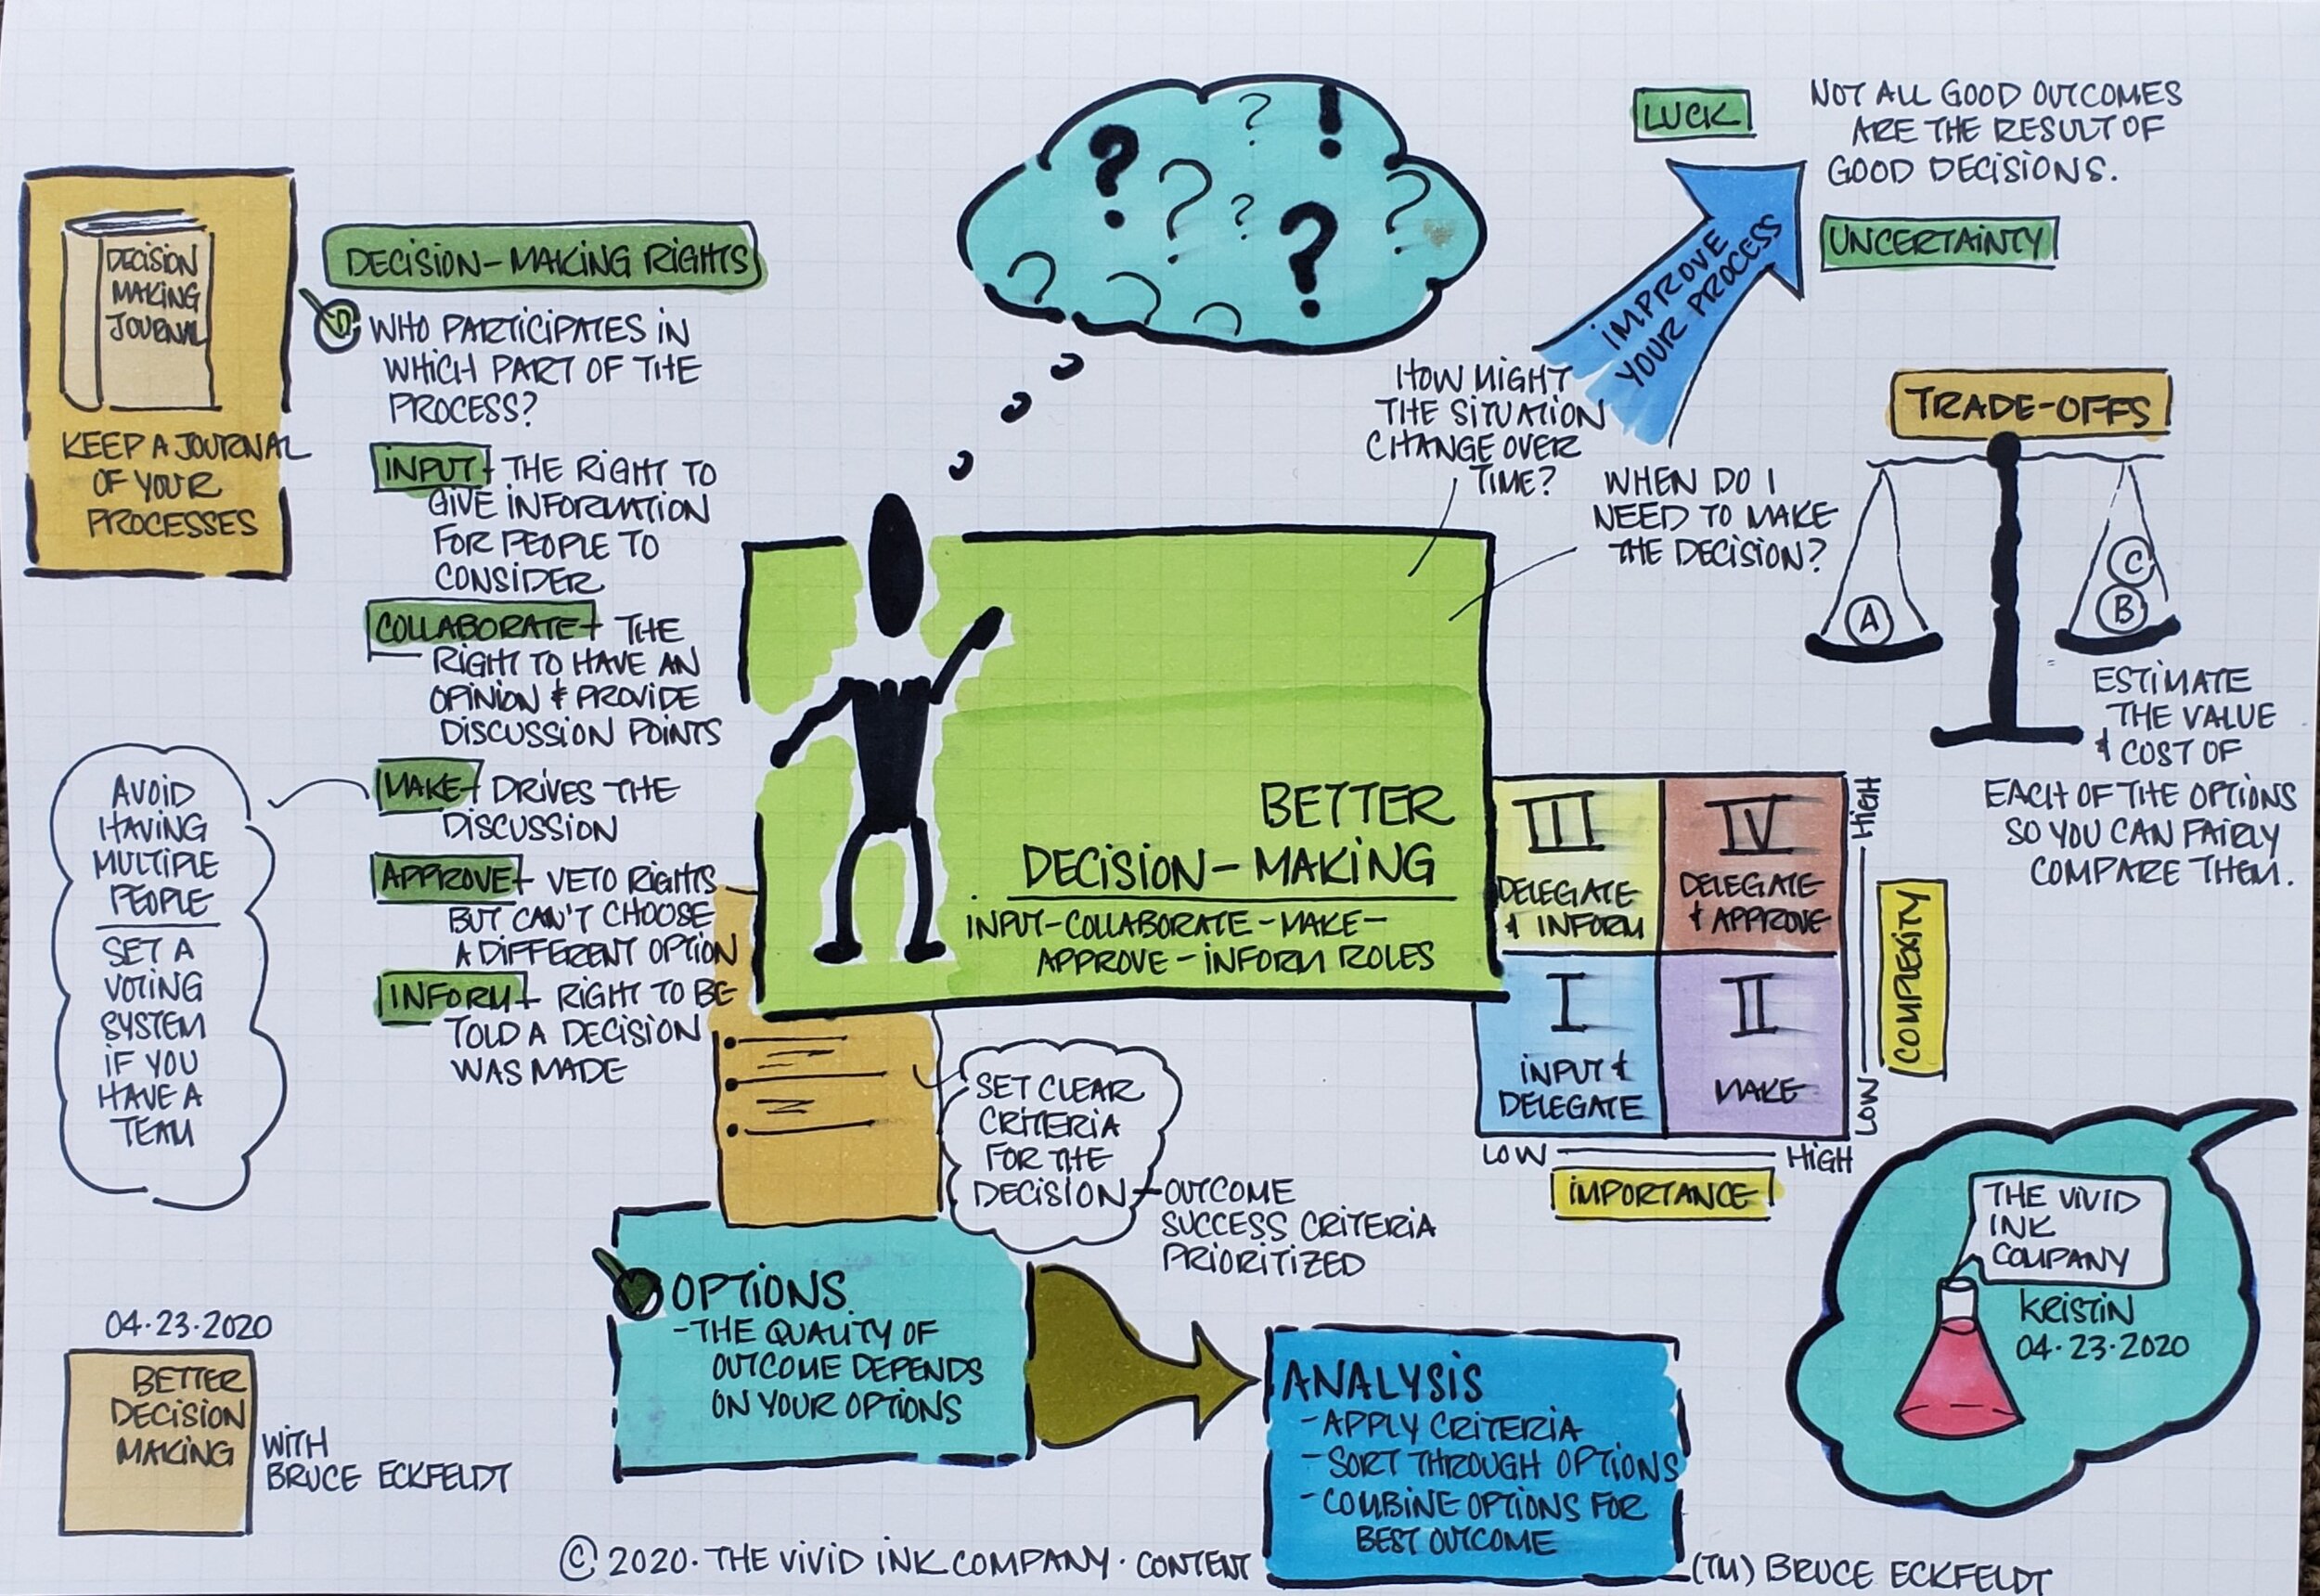 DECISION
MAKING
JOURNAL
KEEP A JOURNAL
OF YOUR
PROCESSES
DECISION-MAKING RIGHTS
WHO PARTICIPATES IN
WHICH PART OF THE
PROCESS?
INPUT - THE RIGHT TO
GIVE INFORMATION
FOR PEOPLE TO
CONSIDER
COLLABORATE - THE
RIGHT TO HAVE AN
OPINION & PROVIDE
DISCUSSION POINTS
MAKE - DRIVES THE
DISCUSSION
APPROVE - VETO RIGHTS
BUT CAN'T CHOOSE
A DIFFERENT OPTION
INFORM - RIGHT TO BE
TOLD A DECISION
WAS MADE
AVOID
HAVING
MULTIPLE
PEOPLE
SET A
VOTING
SYSTEM
IF YOU
HAVE A
TEAM
04.23.2020
BETTER
DECISION
MAKING
WITH
BRUCE ECKFELDT
? ! ? ? ? ? ? ? ? ? ?
BETTER
DECISION-MAKING
INPUT-COLLABORATE-MAKE-
APPROVE-INFORM ROLES
HOW MIGHT
THE SITUATION
CHANGE OVER
TIME?
WHEN DO I
NEED TO MAKE
THE DECISION?
IMPROVE
YOUR PROCESS
LUCK
NOT ALL GOOD OUTCOMES
ARE THE RESULT OF
GOOD DECISIONS.
UNCERTAINTY
TRADE-OFFS
A
C
B
ESTIMATE
THE VALUE
& COST OF
EACH OF THE OPTIONS
SO YOU CAN FAIRLY
COMPARE THEM.
III
DELEGATE
& INFORM
IV
DELEGATE
& APPROVE
I
INPUT &
DELEGATE
II
MAKE
HIGH
COMPLEXITY
LOW
LOW
HIGH
IMPORTANCE
SET CLEAR
CRITERIA
FOR THE
DECISION - OUTCOME
SUCCESS CRITERIA
PRIORITIZED
OPTIONS
- THE QUALITY OF
OUTCOME DEPENDS
ON YOUR OPTIONS
ANALYSIS
- APPLY CRITERIA
- SORT THROUGH OPTIONS
- COMBINE OPTIONS FOR
BEST OUTCOME
THE VIVID
INK
COMPANY
KRISTIN
04.23.2020
© 2020. THE VIVID INK COMPANY. CONTENT (TM) BRUCE ECKFELDT